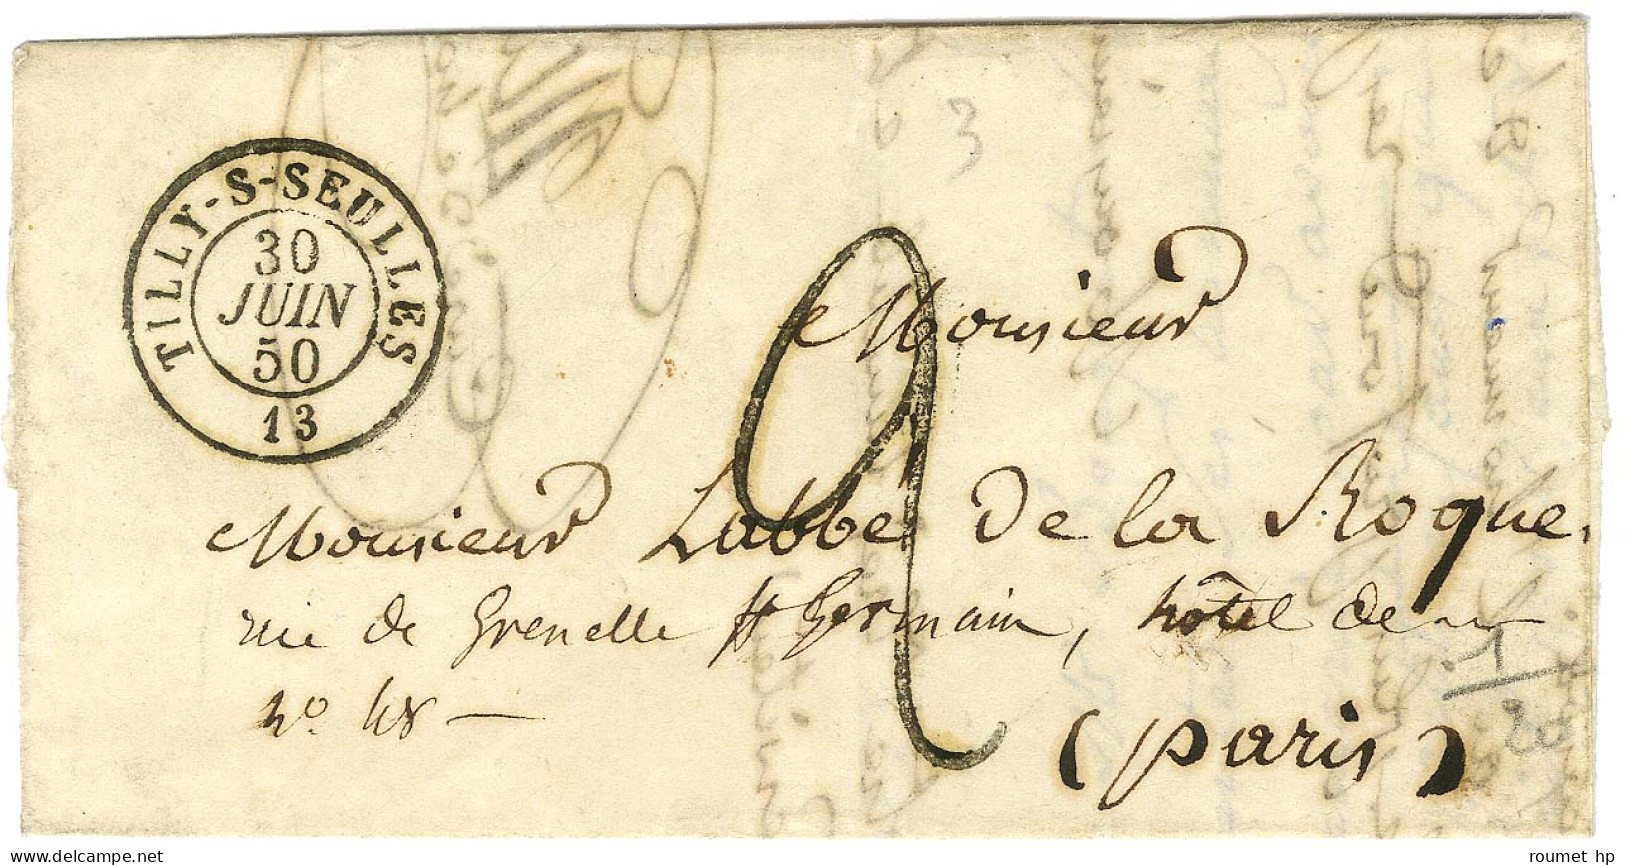 TILLY-S-SEULLES
30
JUIN
50
13
3
2
Monsieur
Monsieur Labbe De la Roque.
rue de Grenelle St Germain, hôtel de
no 48 —
(paris)
roumet hp